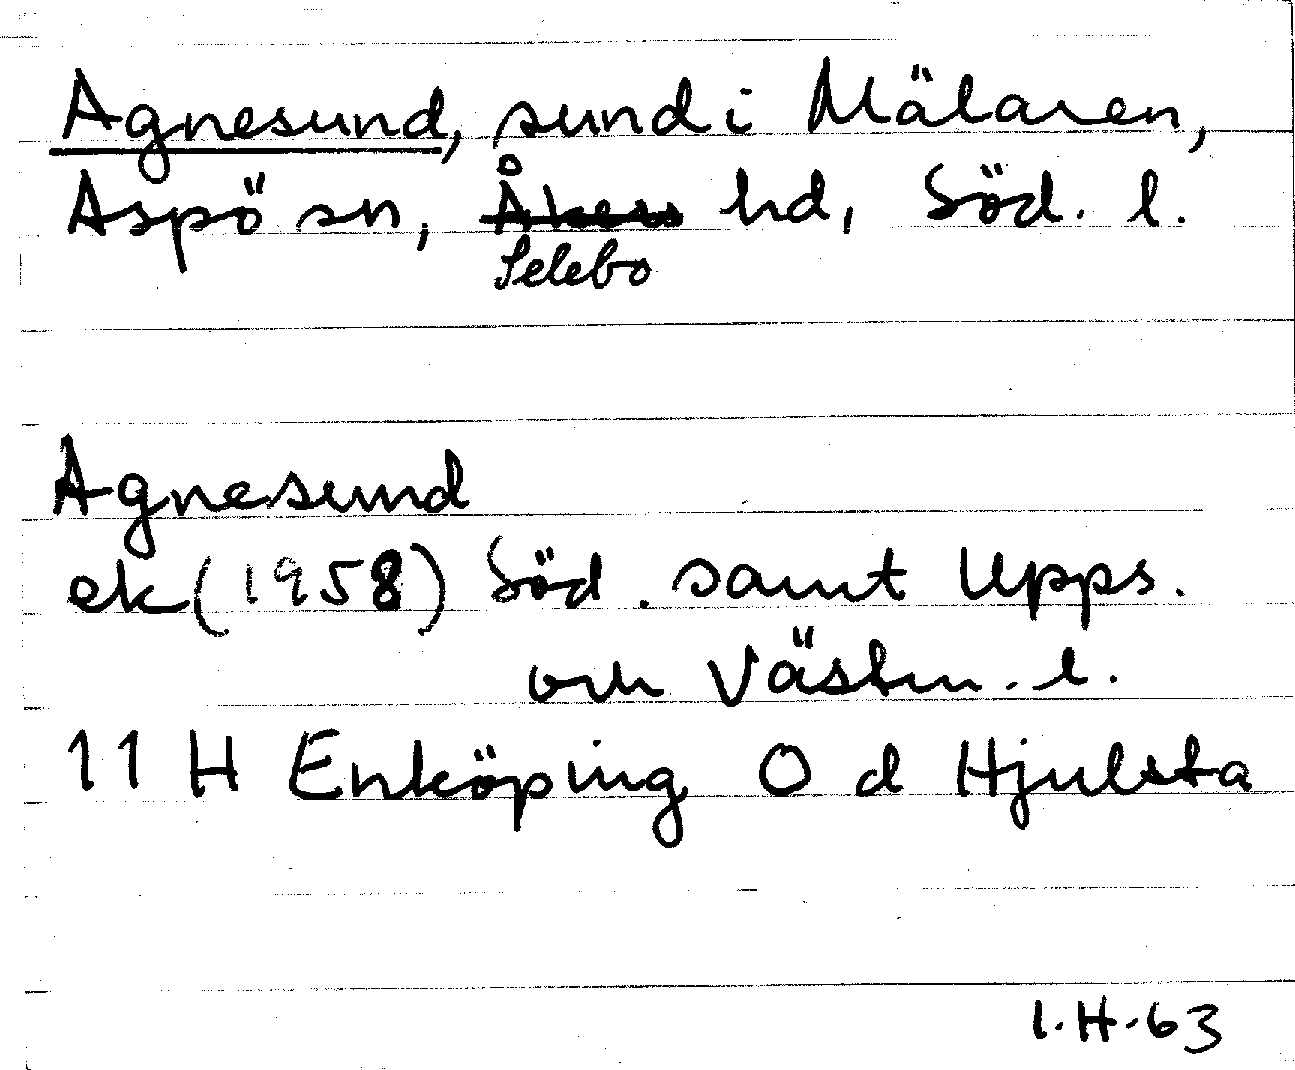 Agnesund, sund i Mälaren,
Aspö sn, Åkers hd, Söd. l.
Selebo
Agnesund
ek (1958) Söd. samt Upps.
och Västm. l.
11 H Enköping O d Hjulsta
I.H.63